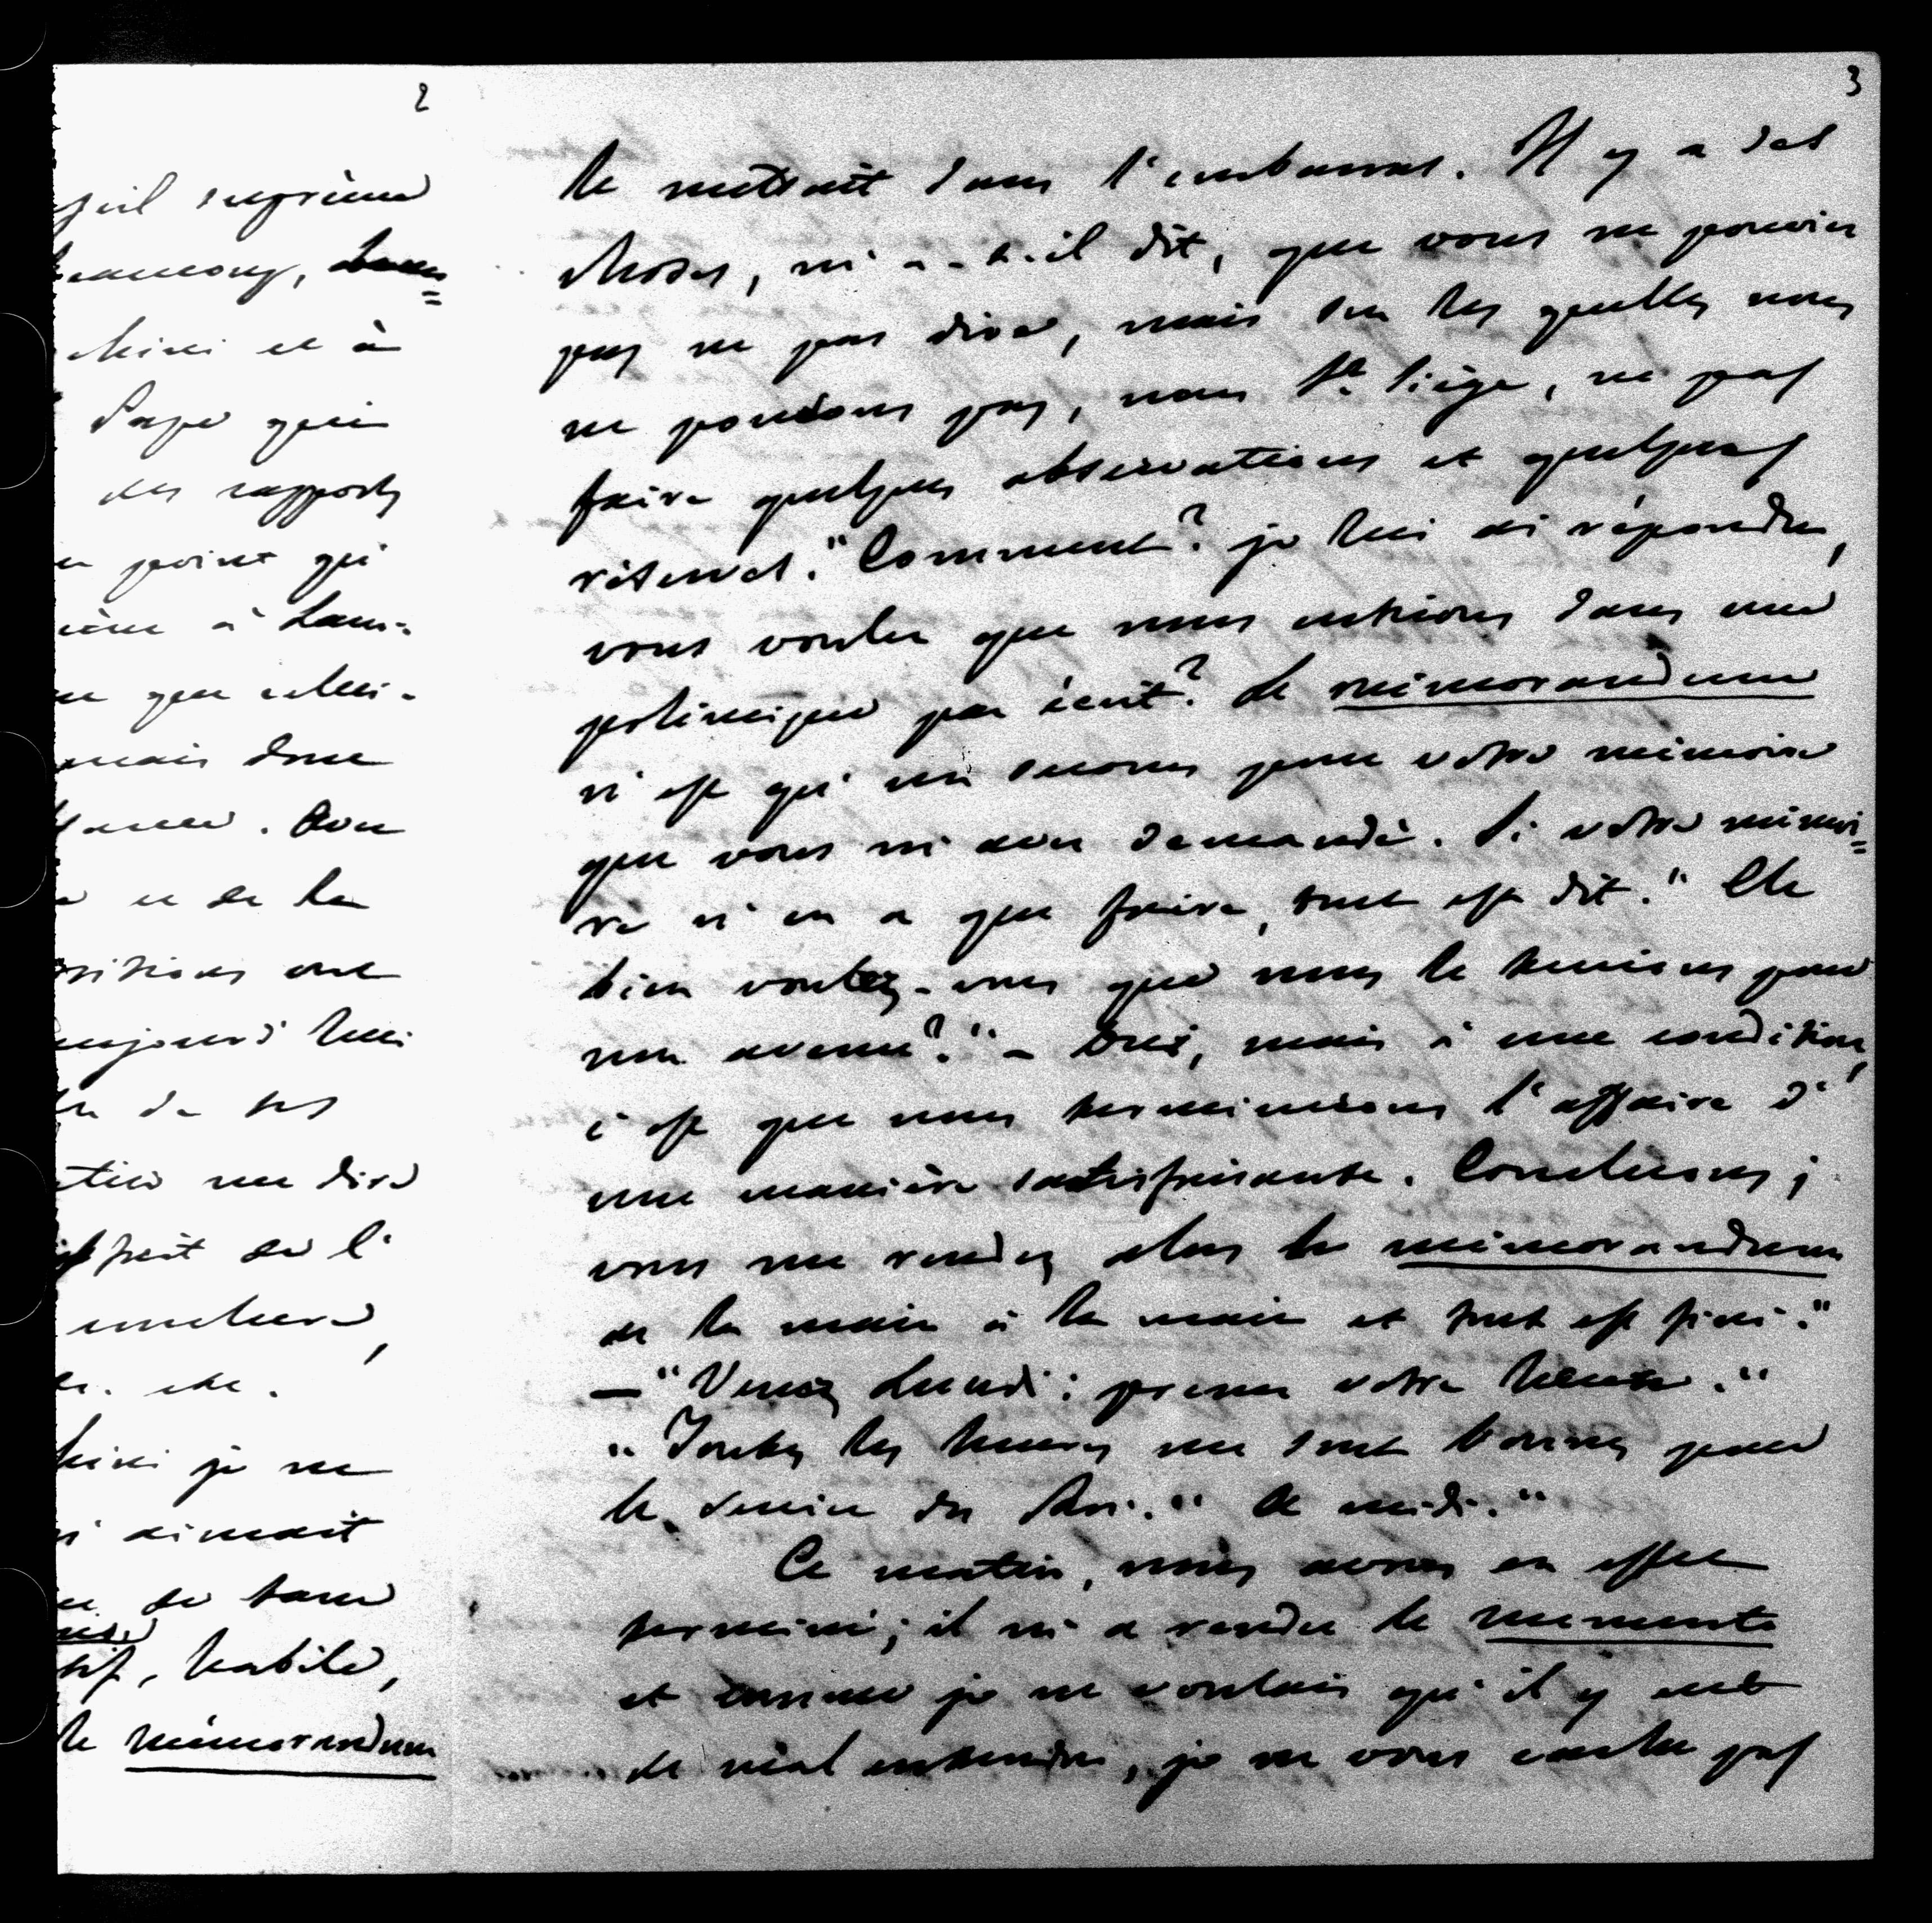 2
suprême
beaucoup, Lam=
chini et à
Pape qui
des rapports
point qui
à Lam-
que celui-
mais donc
. Que
et de la
ont
aujourd'hui
de ses
me dire
de l'
,
etc.
je ne
aimait
de
habile,
le mémorandum
3
le mettrait dans l'embarras. Il y a des
choses, m'a-t-il dit, que vous ne pouviez
pas ne pas dire, mais sur les quelles nous
ne pouvions pas, nous St. Siège, ne pas
faire quelques observations et quelques
réserves." Comment? je lui ai répondu,
vous voulez que nous entrions dans une
polémique par écrit? Le mémorandum
n'est qu'un secours pour votre mémoire
que vous m'avez demandé. Si votre mémoi=
re n'en a que faire, tout est dit." Eh
bien voulez-vous que nous le tenions pour
non avenu?" - Oui, mais à une condition,
c'est que nous terminions l'affaire d'
une manière satisfaisante. Concluons;
vous me rendez alors le mémorandum
de la main à la main et tout est fini."
— "Venez Lundi: prenez votre heure."
"Toutes les heures me sont bonnes pour
le service du Roi." "A midi."
Ce matin, nous avons en effet
terminé; il m'a rendu le memento
et comme je ne voulais qu'il y eut
de mal entendu, je ne vous cache pas